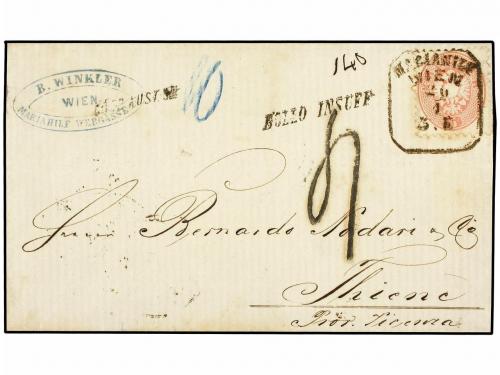 B. WINKLER
WIEN
MARIAHILF WEBGASSE
10
140
BOLLO INSUFF
MARIAHILF
WIEN
26
1
3. E
Herrn Bernardo Nodari & Co
Thiene
Prov. Vicenza